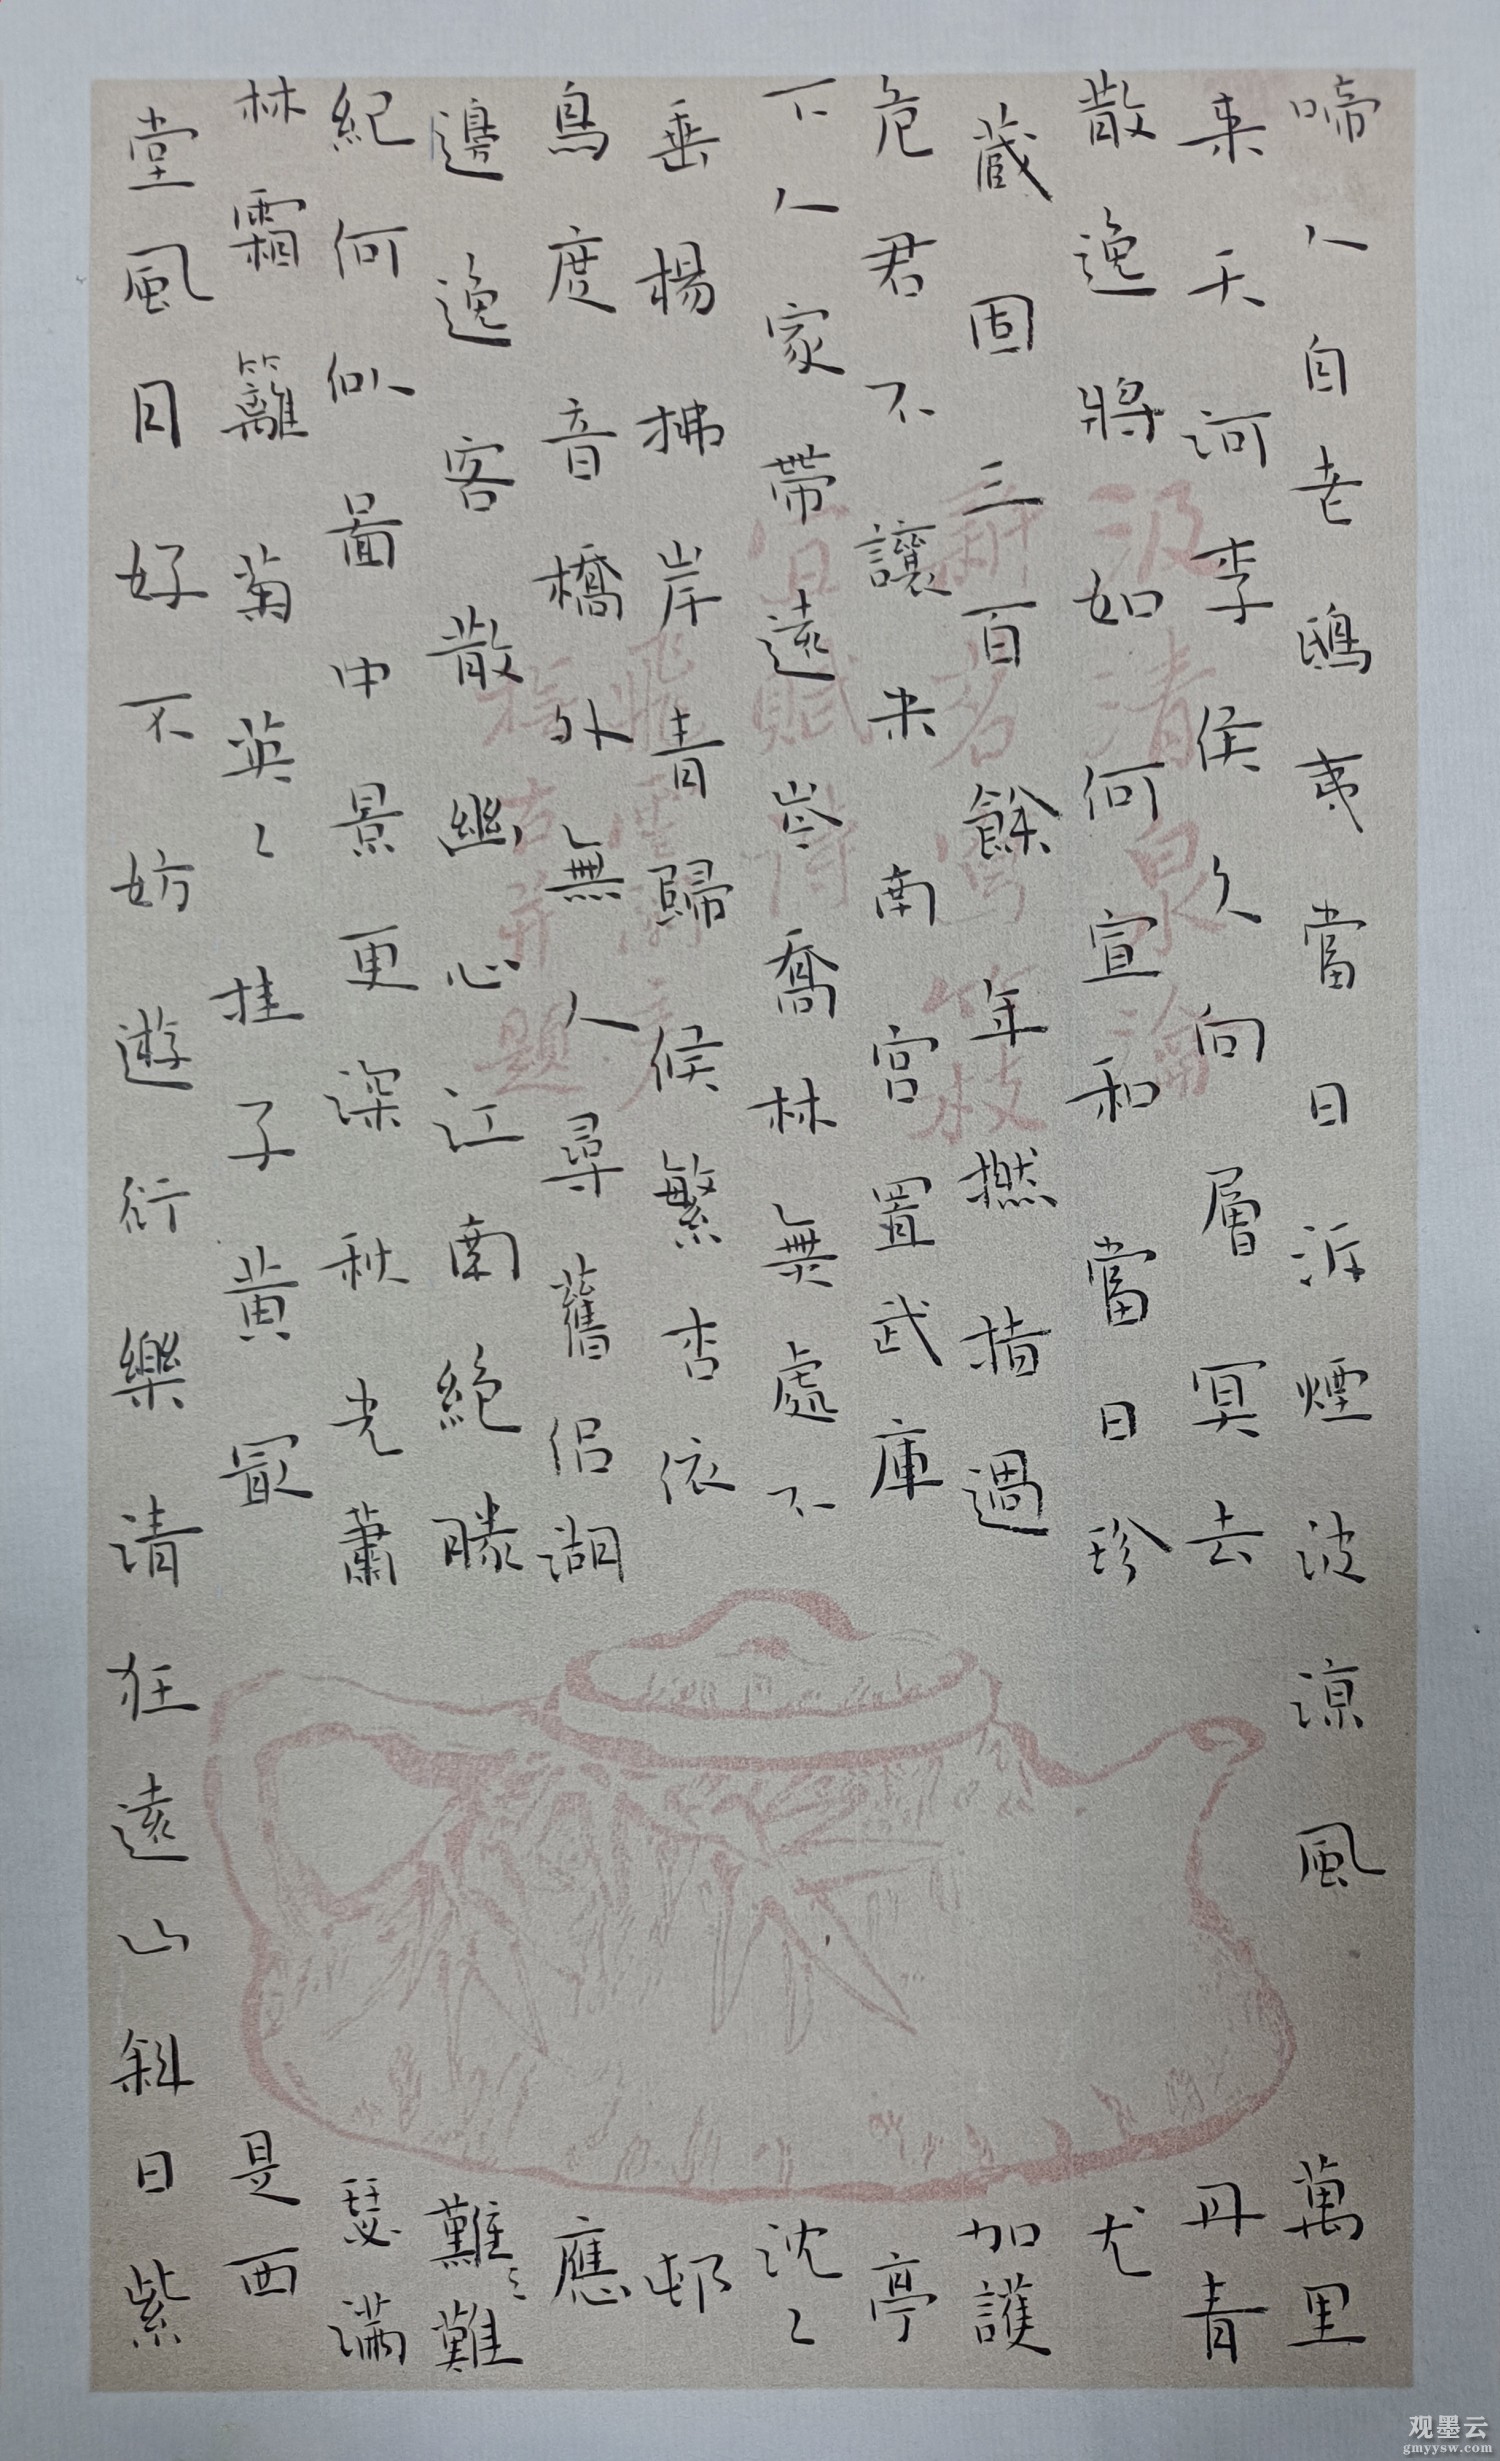 啼人自老鴟夷當日泝煙波涼風萬里
来天河李侯久向層冥去丹青
散逸將如何宣和當日珍尤
蔵固三百餘年撚指過加護
危君不讓来南宮置武庫亭
下人家帶遠岑喬林無處不沈〻
垂楊拂岸青歸候繁杏依邨
鳥度音橋外無人尋舊侶湖應
邊逸客散幽心江南絕勝難〻難
紀何似啚中景更深秋光蕭瑟满
林霜籬菊英〻桂子黄冣是西
堂風月好不妨遊衍樂清狂遠山斜日紫
观墨云
gmyysw.com